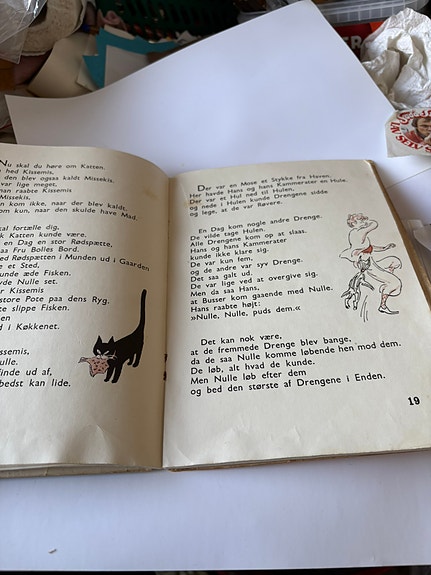 Nu skal du høre om Katten.
hed Kissemis.
den blev ogsaa kaldt Missekis.
var lige meget,
man raabte Kissemis
Missekis.
kom ikke, naar der blev kaldt.
kom kun, naar den skulde have Mad.
skal fortælle dig,
k Katten kunde være.
en Dag en stor Rødspætte,
saa Fru Bolles Bord.
ed Rødspætten i Munden ud i Gaarden
e et Sted,
kunde æde Fisken.
de Nulle set.
r Kissemis
store Pote paa dens Ryg.
te slippe Fisken.
en
d i Køkkenet.
issemis,
ulle.
finde ud af,
bedst kan lide.
Der var en Mose et Stykke fra Haven.
Her havde Hans og hans Kammerater en Hule.
Der var et Hul ned til Hulen,
og nede i Hulen kunde Drengene sidde
og lege, at de var Røvere.
En Dag kom nogle andre Drenge.
De vilde tage Hulen.
Alle Drengene kom op at slaas.
Hans og hans Kammerater
kunde ikke klare sig.
De var kun fem,
og de andre var syv Drenge.
Det saa galt ud.
De var lige ved at overgive sig.
Men da saa Hans,
at Busser kom gaaende med Nulle.
Hans raabte højt:
»Nulle, Nulle, puds dem.«
Det kan nok være,
at de fremmede Drenge blev bange,
da de saa Nulle komme løbende hen mod dem.
De løb, alt hvad de kunde.
Men Nulle løb efter dem
og bed den største af Drengene i Enden.
19